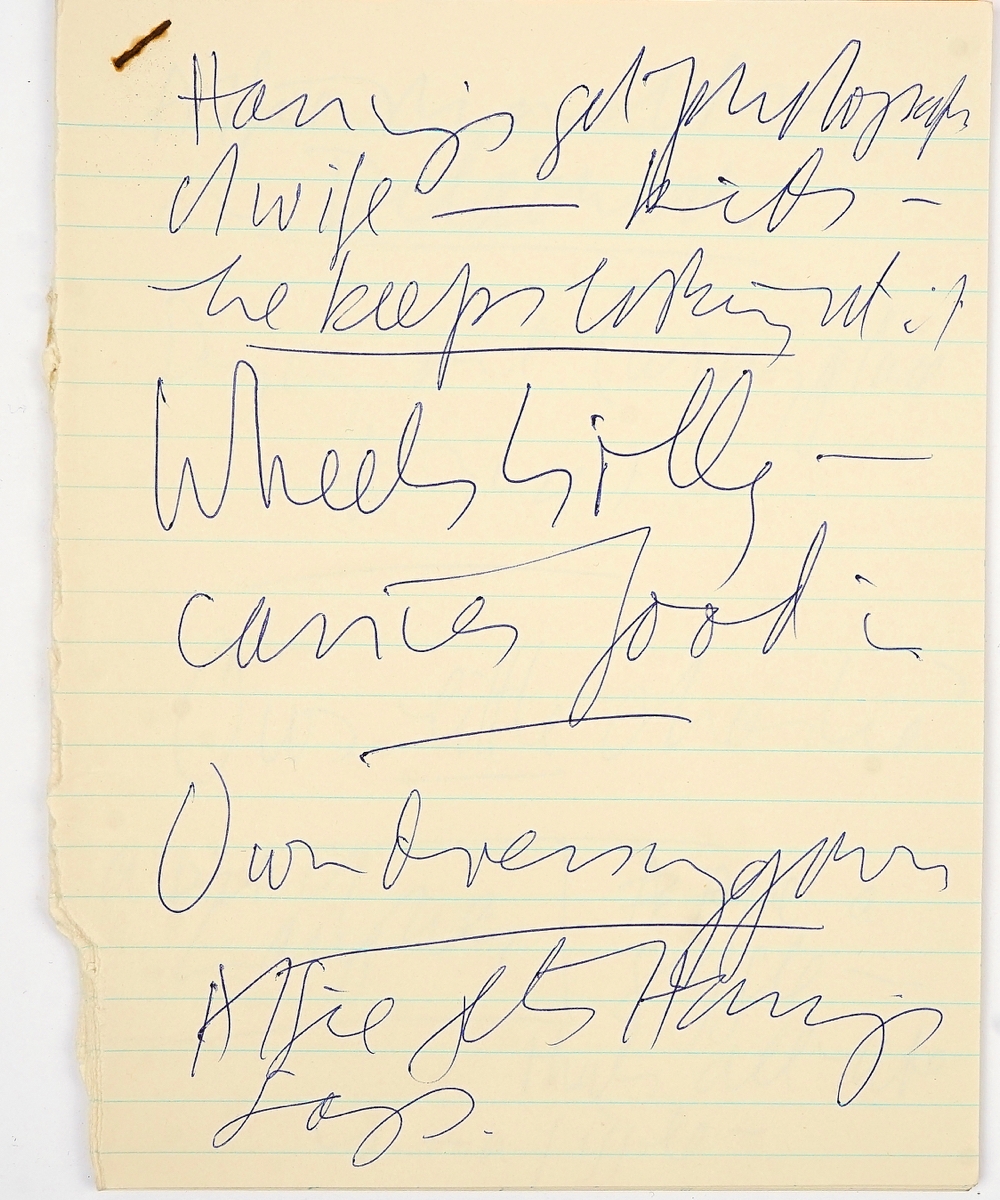 Harry's got photograph
of wife — kids -
he keeps looking at it
Wheels trolly —
carries food in
Own dressing gown
Alfie gets Harry's